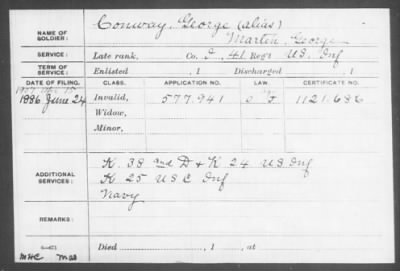 NAME OF SOLDIER: Conway, George (alias)
Marten, George
SERVICE: Late rank, Co. I, 41 Reg't U.S. Inf
TERM OF SERVICE: Enlisted , 1 Discharged , 1
DATE OF FILING. CLASS. APPLICATION NO. LAW. CERTIFICATE NO.
1886 June 24 Invalid, 577.941 1121.686
Widow,
Minor,
ADDITIONAL SERVICES: K. 38 and D + K 24 U S Inf
K 25 U S C Inf
Navy
REMARKS:
Died , 1 , at